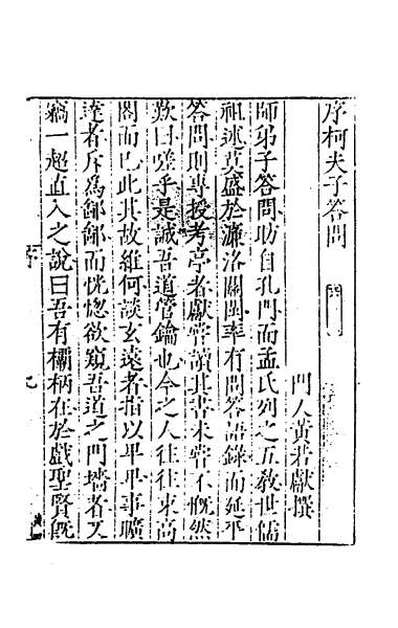 序柯夫子答問
門人黃若獻撰
師弟子答問昉自孔門而孟氏列之五教世儒
祖述莫盛於濂洛關閩率有問答語錄而延平
答問則專授考亭者獻嘗讀其書未嘗不慨然
歎曰嗟乎是誠吾道管鑰也今之人往往束高
閣而已此其故維何談玄遠者指以卑卑事曠
達者斥為鄙鄙而恍惚欲窺吾道之門墻者又
竊一超直入之說曰吾有欛柄在於戲聖賢旣
序